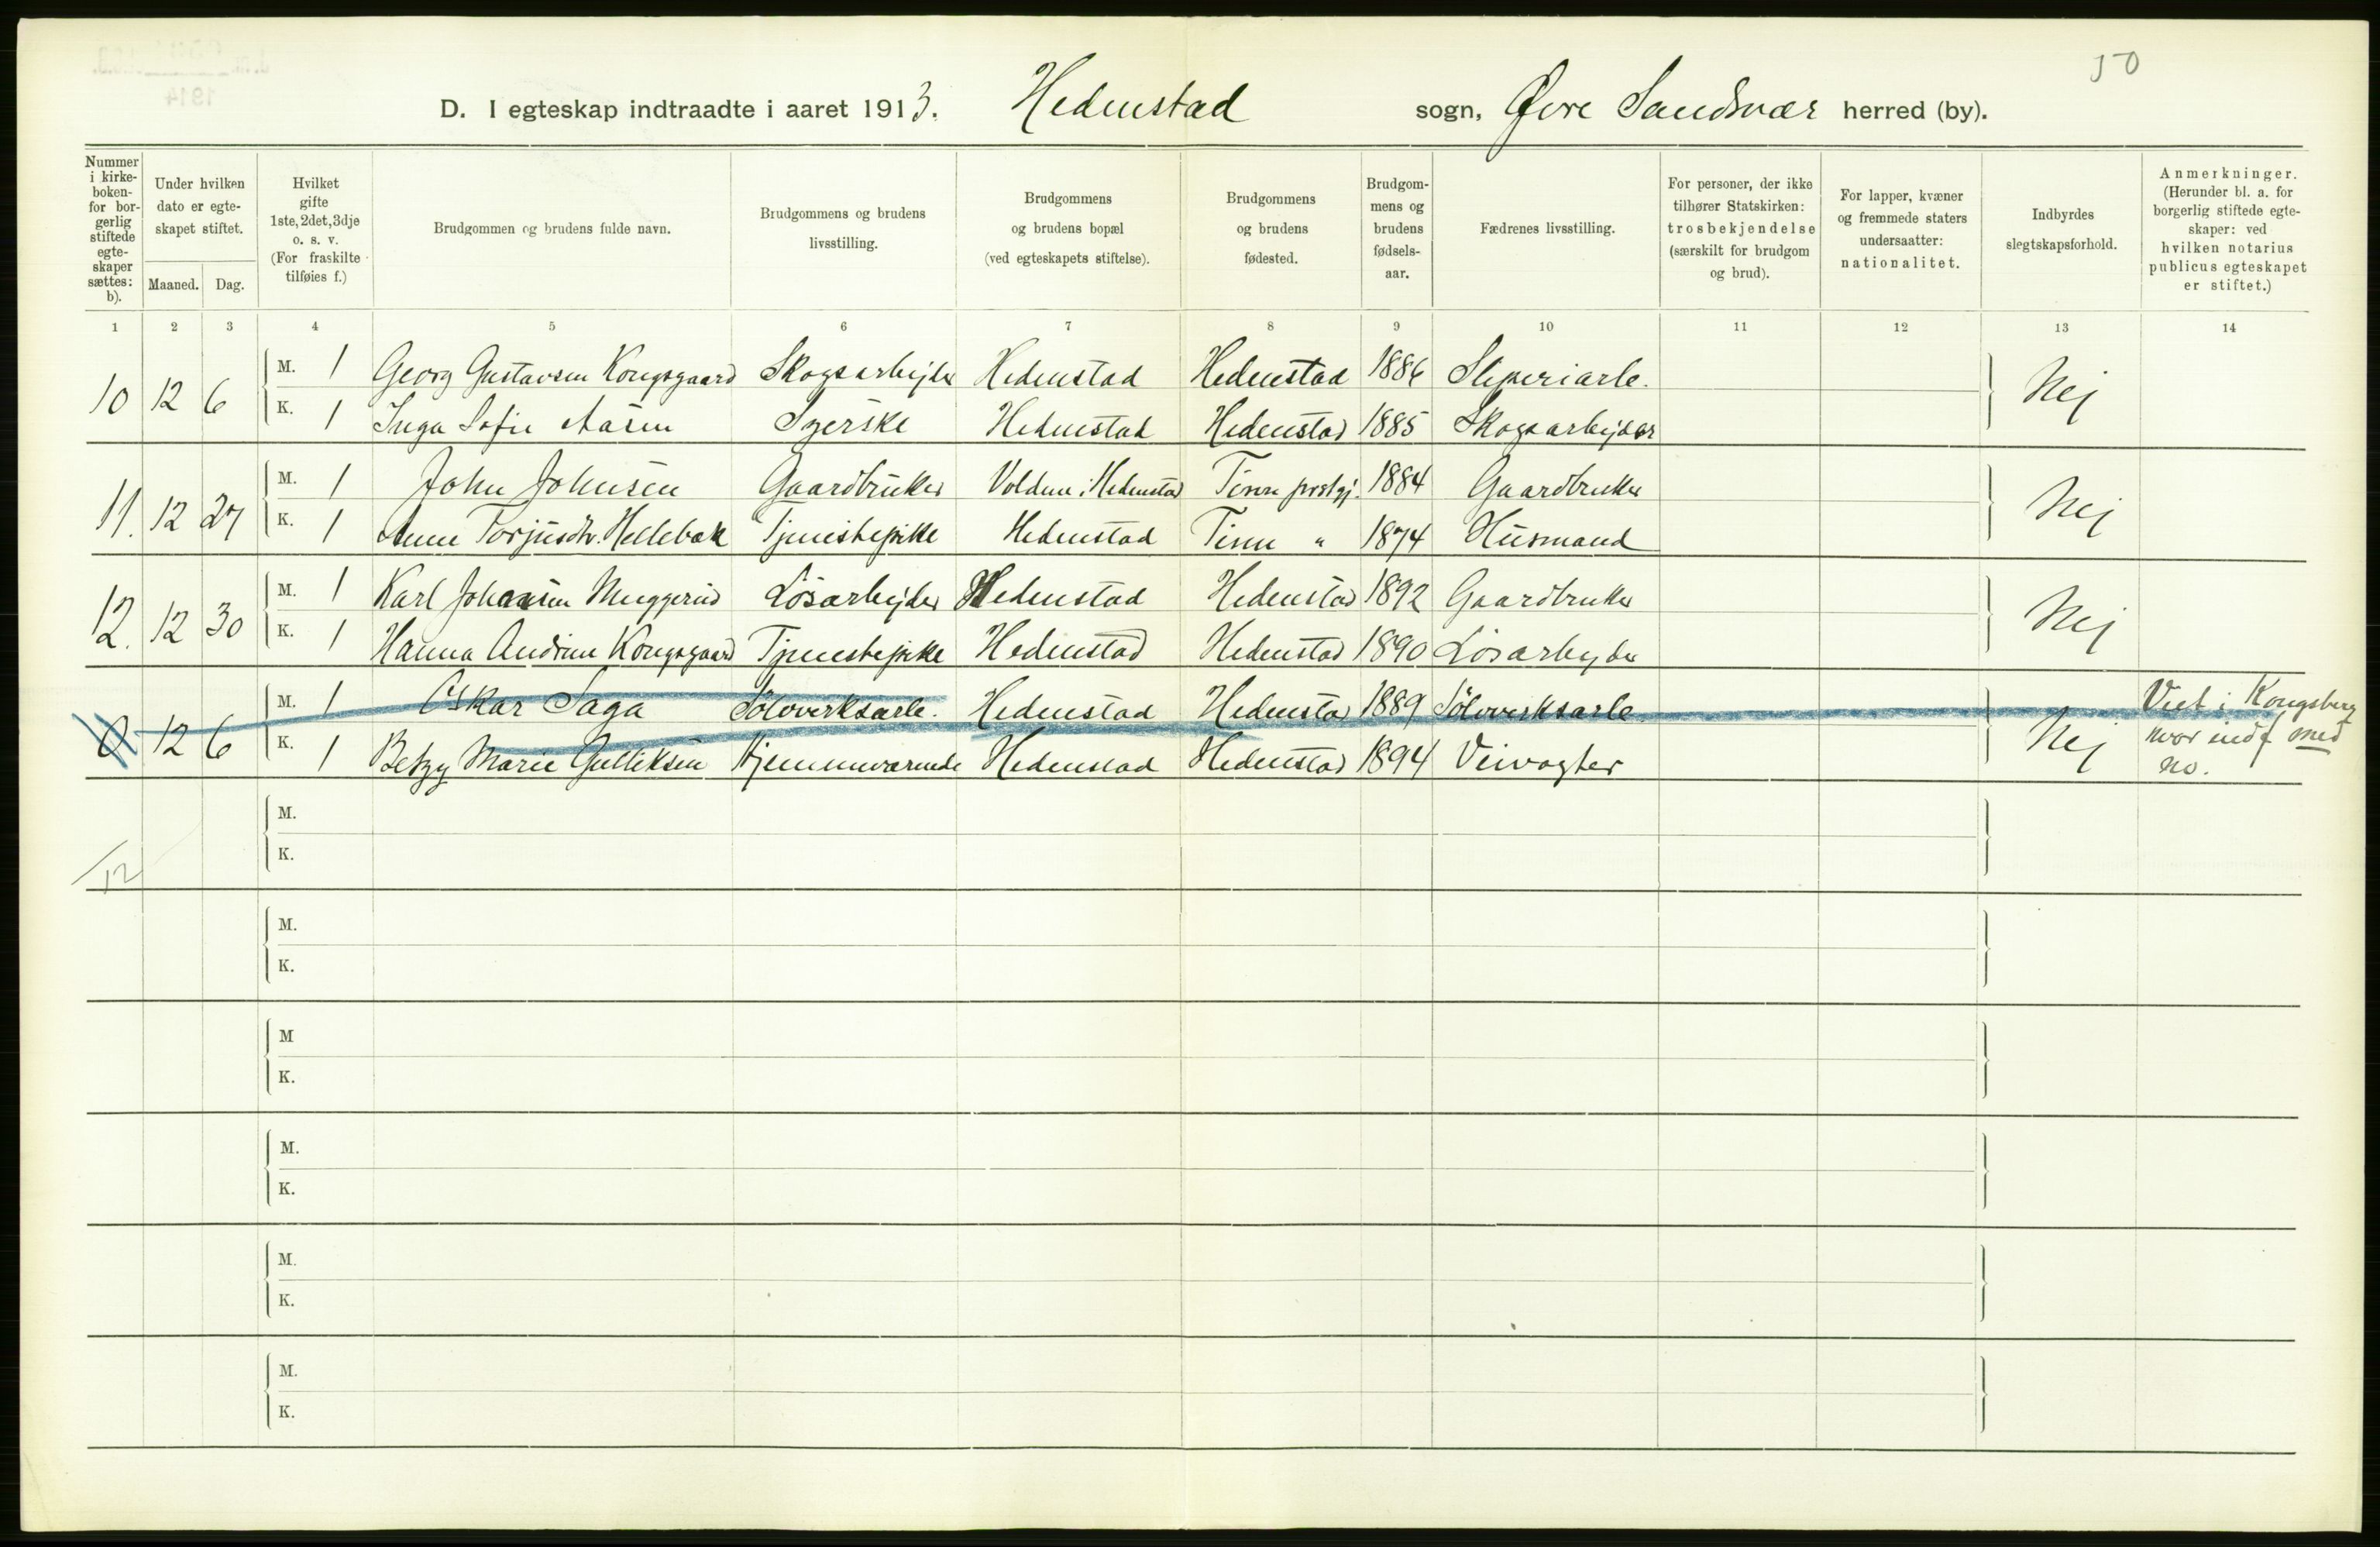 50
D. I egteskap indtraadte i aaret 1913. Hedenstad sogn, Øvre Sandsvær herred (by).
Nummer i kirkeboken- for borgerlig stiftede egteskaper sættes: b).
Under hvilken dato er egteskapet stiftet.
Maaned. Dag.
Hvilket gifte 1ste, 2det, 3dje o. s. v. (For fraskilte tilføies f.)
Brudgommen og brudens fulde navn.
Brudgommens og brudens livsstilling.
Brudgommens og brudens bopæl (ved egteskapets stiftelse).
Brudgommens og brudens fødested.
Brudgommens og brudens fødselsaar.
Fædrenes livsstilling.
For personer, der ikke tilhører Statskirken: trosbekjendelse (særskilt for brudgom og brud).
For lapper, kvæner og fremmede staters undersaatter: nationalitet.
Indbyrdes slegtskapsforhold.
Anmerkninger. (Herunder bl. a. for borgerlig stiftede egteskaper: ved hvilken notarius publicus egteskapet er stiftet.)
1 2 3 4 5 6 7 8 9 10 11 12 13 14
M. 1 Georg Gustavsen Kongsgaard Skogsarbejder Hedenstad Hedenstad 1886 Sliperiarb.
10 12 6 Nej
K. 1 Inga Sofie Aasen Syerske Hedenstad Hedenstad 1885 Skogsarbejder
M. 1 John Johnsen Gaardbruker Volden i Hedenstad Tinn prstgj. 1884 Gaardbruker
11. 12 27 Nej
K. 1 Anne Torjusdtr. Hellebæk Tjenestepike Hedenstad Tinn " 1874 Husmand
M. 1 Karl Johansen Muggerud Løsarbejder Hedenstad Hedenstad 1892 Gaardbruker
12. 12 30 Nej
K. 1 Hanna Andrine Kongsgaard Tjenestepike Hedenstad Hedenstad 1890 Løsarbejder
M. 1 Oskar Saga Sölvverksarb. Hedenstad Hedenstad 1889 Sölvverksarb. Viet i Kongsberg
0 12 6 Nej hvor indf med
K. 1 Betzy Marie Gulliksen Hjemmeværende Hedenstad Hedenstad 1894 Veivogter no.
M.
K.
12
M.
K.
M
K.
M.
K.
M.
K.
M.
K.